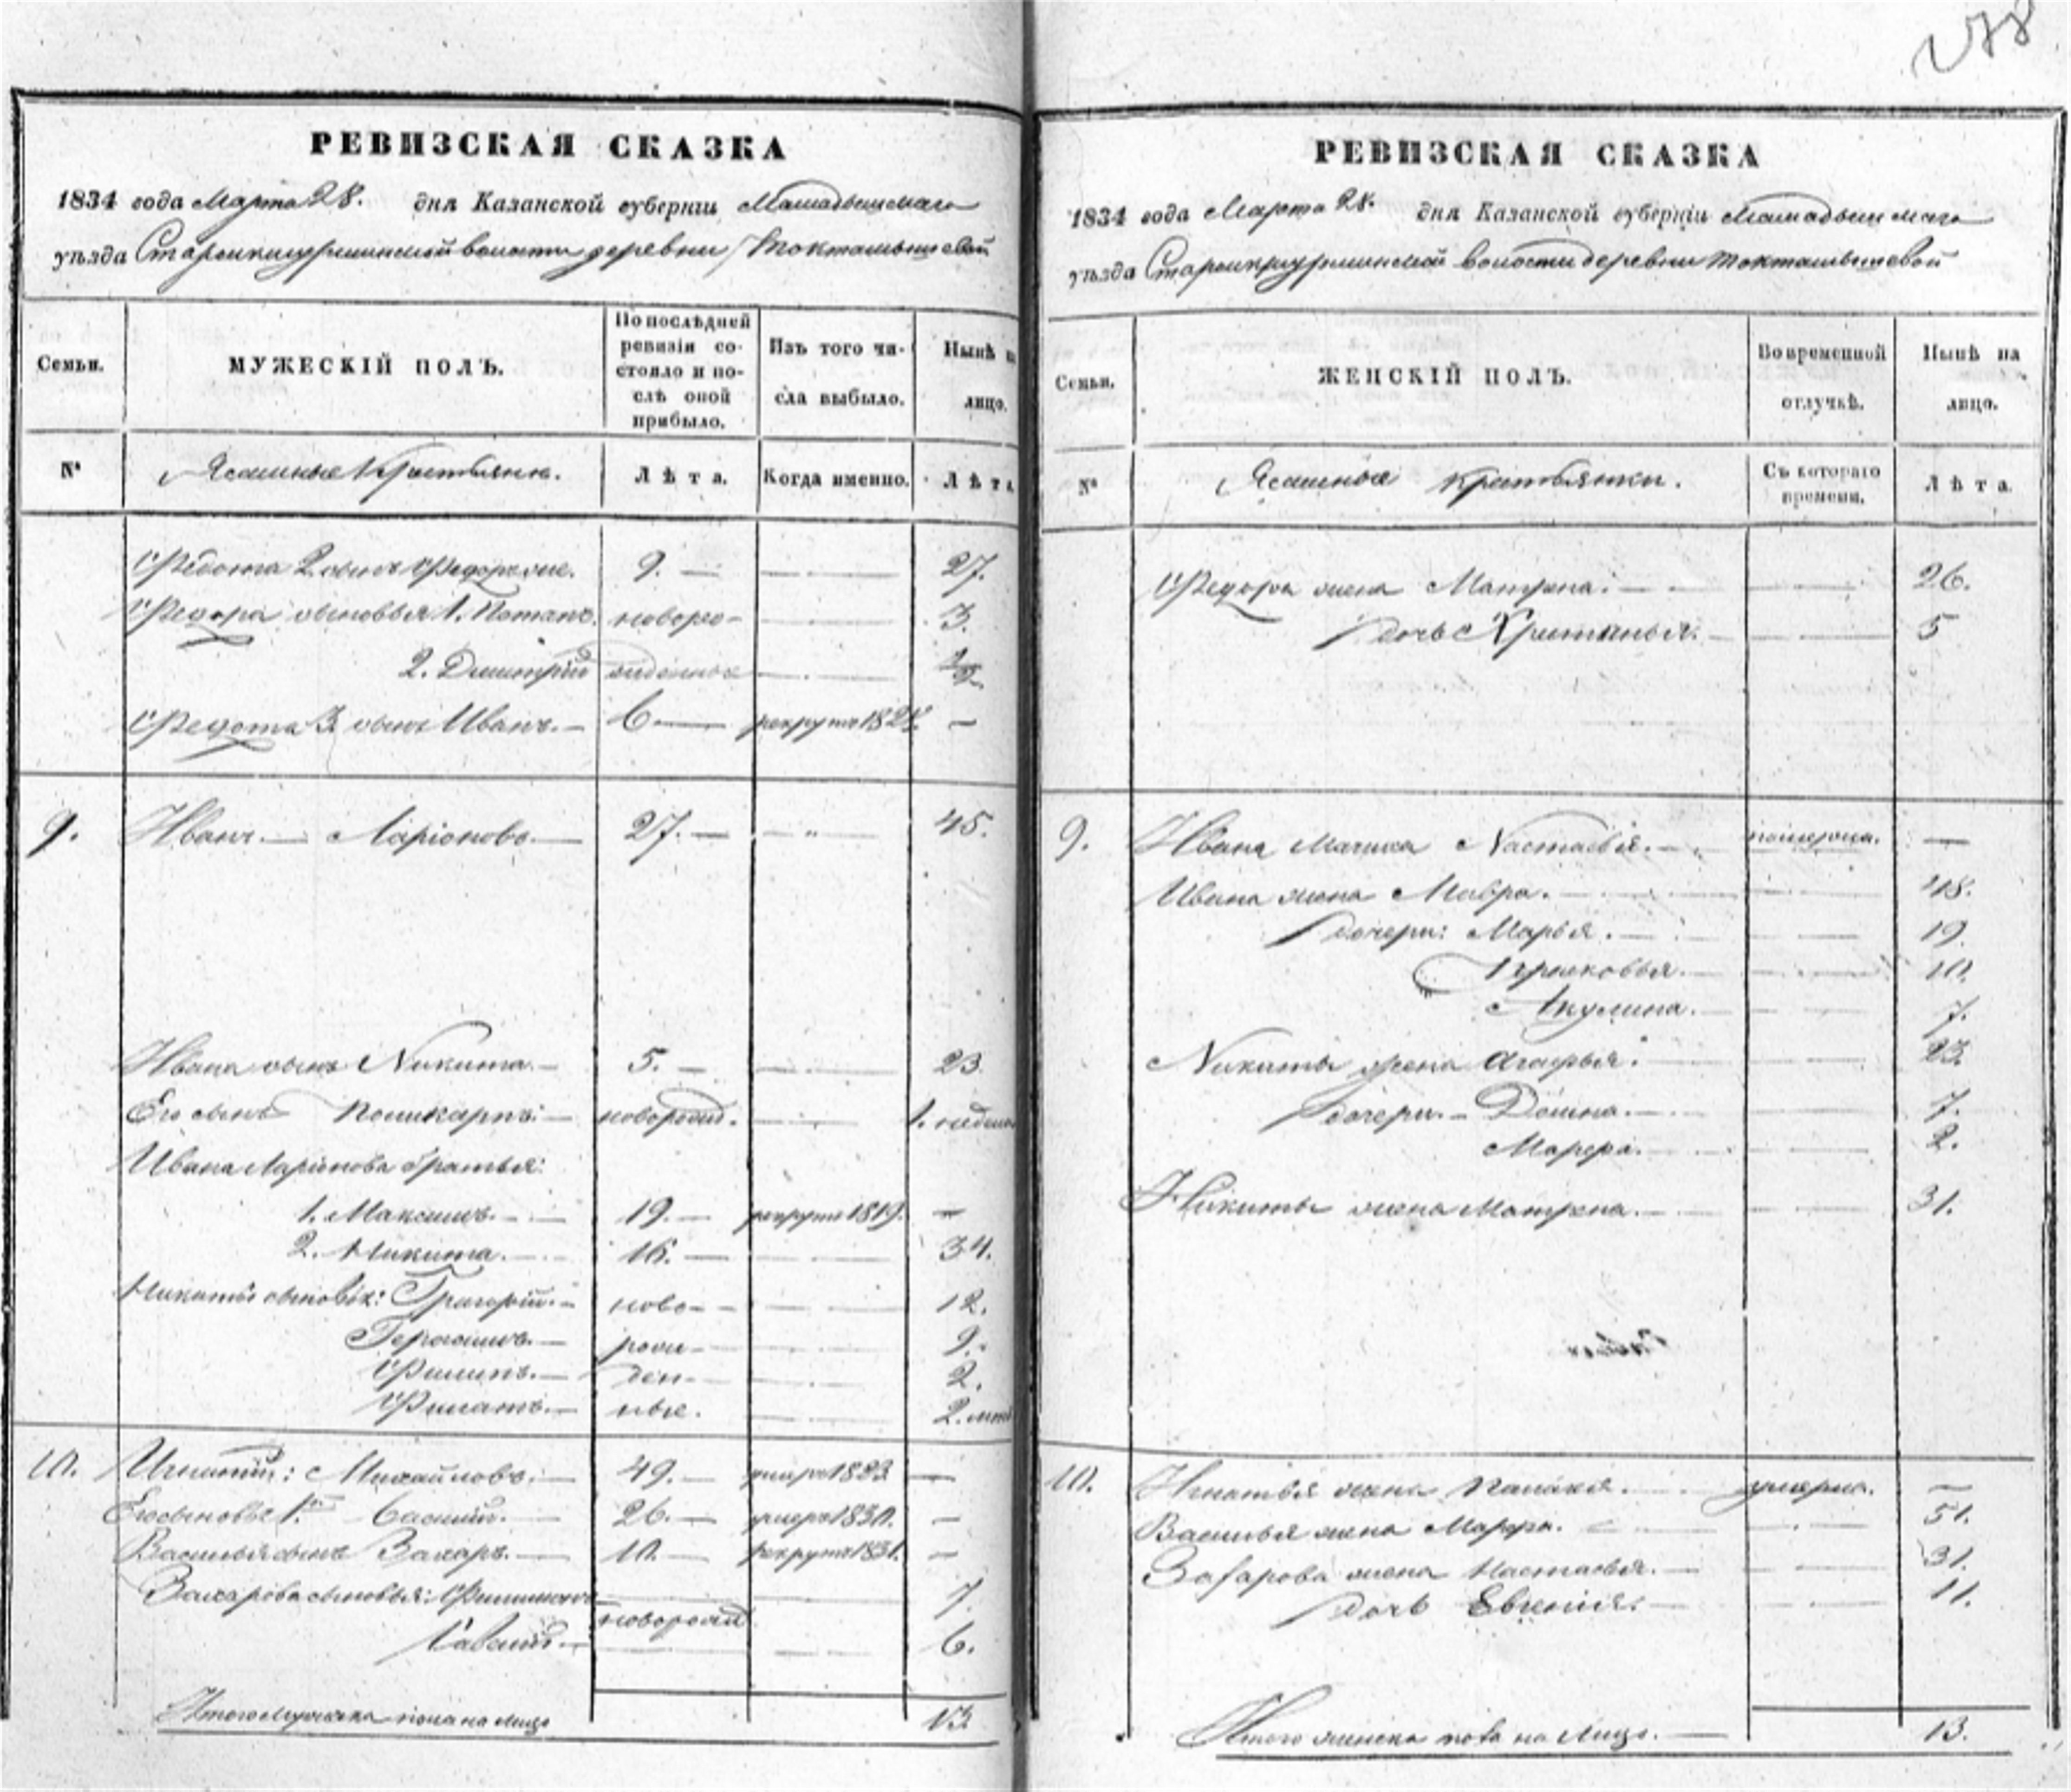 278
РЕВИЗСКАЯ СКАЗКА
1834 года Марта 28. дня Казанской губерніи Мамадышскаго
уѣзда волости деревни
Семьи.
МУЖЕСКІЙ ПОЛЪ.
По послѣдней ревизіи со-
стояло и по-
слѣ оной
прибыло.
Изъ того чи-
сла выбыло.
Нынѣ на
лицо.
№
Ясашные Крестьяне.
Лѣта.
Когда именно.
Лѣта
Федота 2 сынъ 9. — — 27.
Федора сыновья 1. Потапъ. новоро- — 3.
2. Дмитрій жденные —
Федота 3 сынъ Иванъ. — 6 — рекрут —
9. Иванъ. — Ларіоновъ. — 27. — — 45.
Ивана сынъ Никита. — 5. — — 23.
Его сынъ Поликарпъ. — новорожд. — 1. недели
Ивана Ларіонова братья:
1. Максимъ. — 19. — рекрут 1819. —
2. Никита. — 16. — — 34.
Никиты сыновья: Григорій. — ново- — 12.
Герасимъ. — рож- — 9.
Филипъ. — ден- — 2.
Филатъ. — ные. — 2.
10. Игнатій: Михайловъ. — 49. — умеръ 1823 —
Его сыновья 1й Василій. — 26. — умеръ 1830. —
Васильяъ сынъ Захаръ. — 10. — рекрут 1831. —
Захарова сыновья: — 7.
новорожд.
Савелій. — — 6.
Итого мужеска пола на лицо 13.
РЕВИЗСКАЯ СКАЗКА
1834 года Марта 28. дня Казанской губерніи Мамадышскаго
уѣзда волости деревни
Семьи.
ЖЕНСКІЙ ПОЛЪ.
Во временной
отлучкѣ.
Нынѣ на
лицо.
№
Ясашныя крестьянки.
Съ котораго
времени.
Лѣта.
Федора жена Матрена. — — 26.
дочь Христинья. — — 5
9. Ивана Мачиха Настасья. — померла. —
Ивана жена Мавра. — — 48.
дочери: Марья. — — 19.
Прасковья. — — 10.
Акулина. — — 7.
Никиты жена Агафья. — 23.
дочери. — Домна. — — 7.
Марфа. — — 2.
Никиты жена Матрена. — — 31.
10. Игнатья жена Палагея. — умерла. —
Василья жена Марфа. — 51.
Захарова жена Настасья. — — 31.
дочь Евгенія. — — 11.
Итого женска пола на Лицо. — 13.